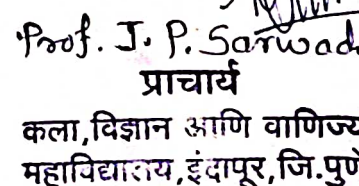 Prof. J. P. Sarwad
प्राचार्य
कला,विज्ञान आणि वाणिज्य
महाविद्यालय,इंदापूर,जि.पुणे